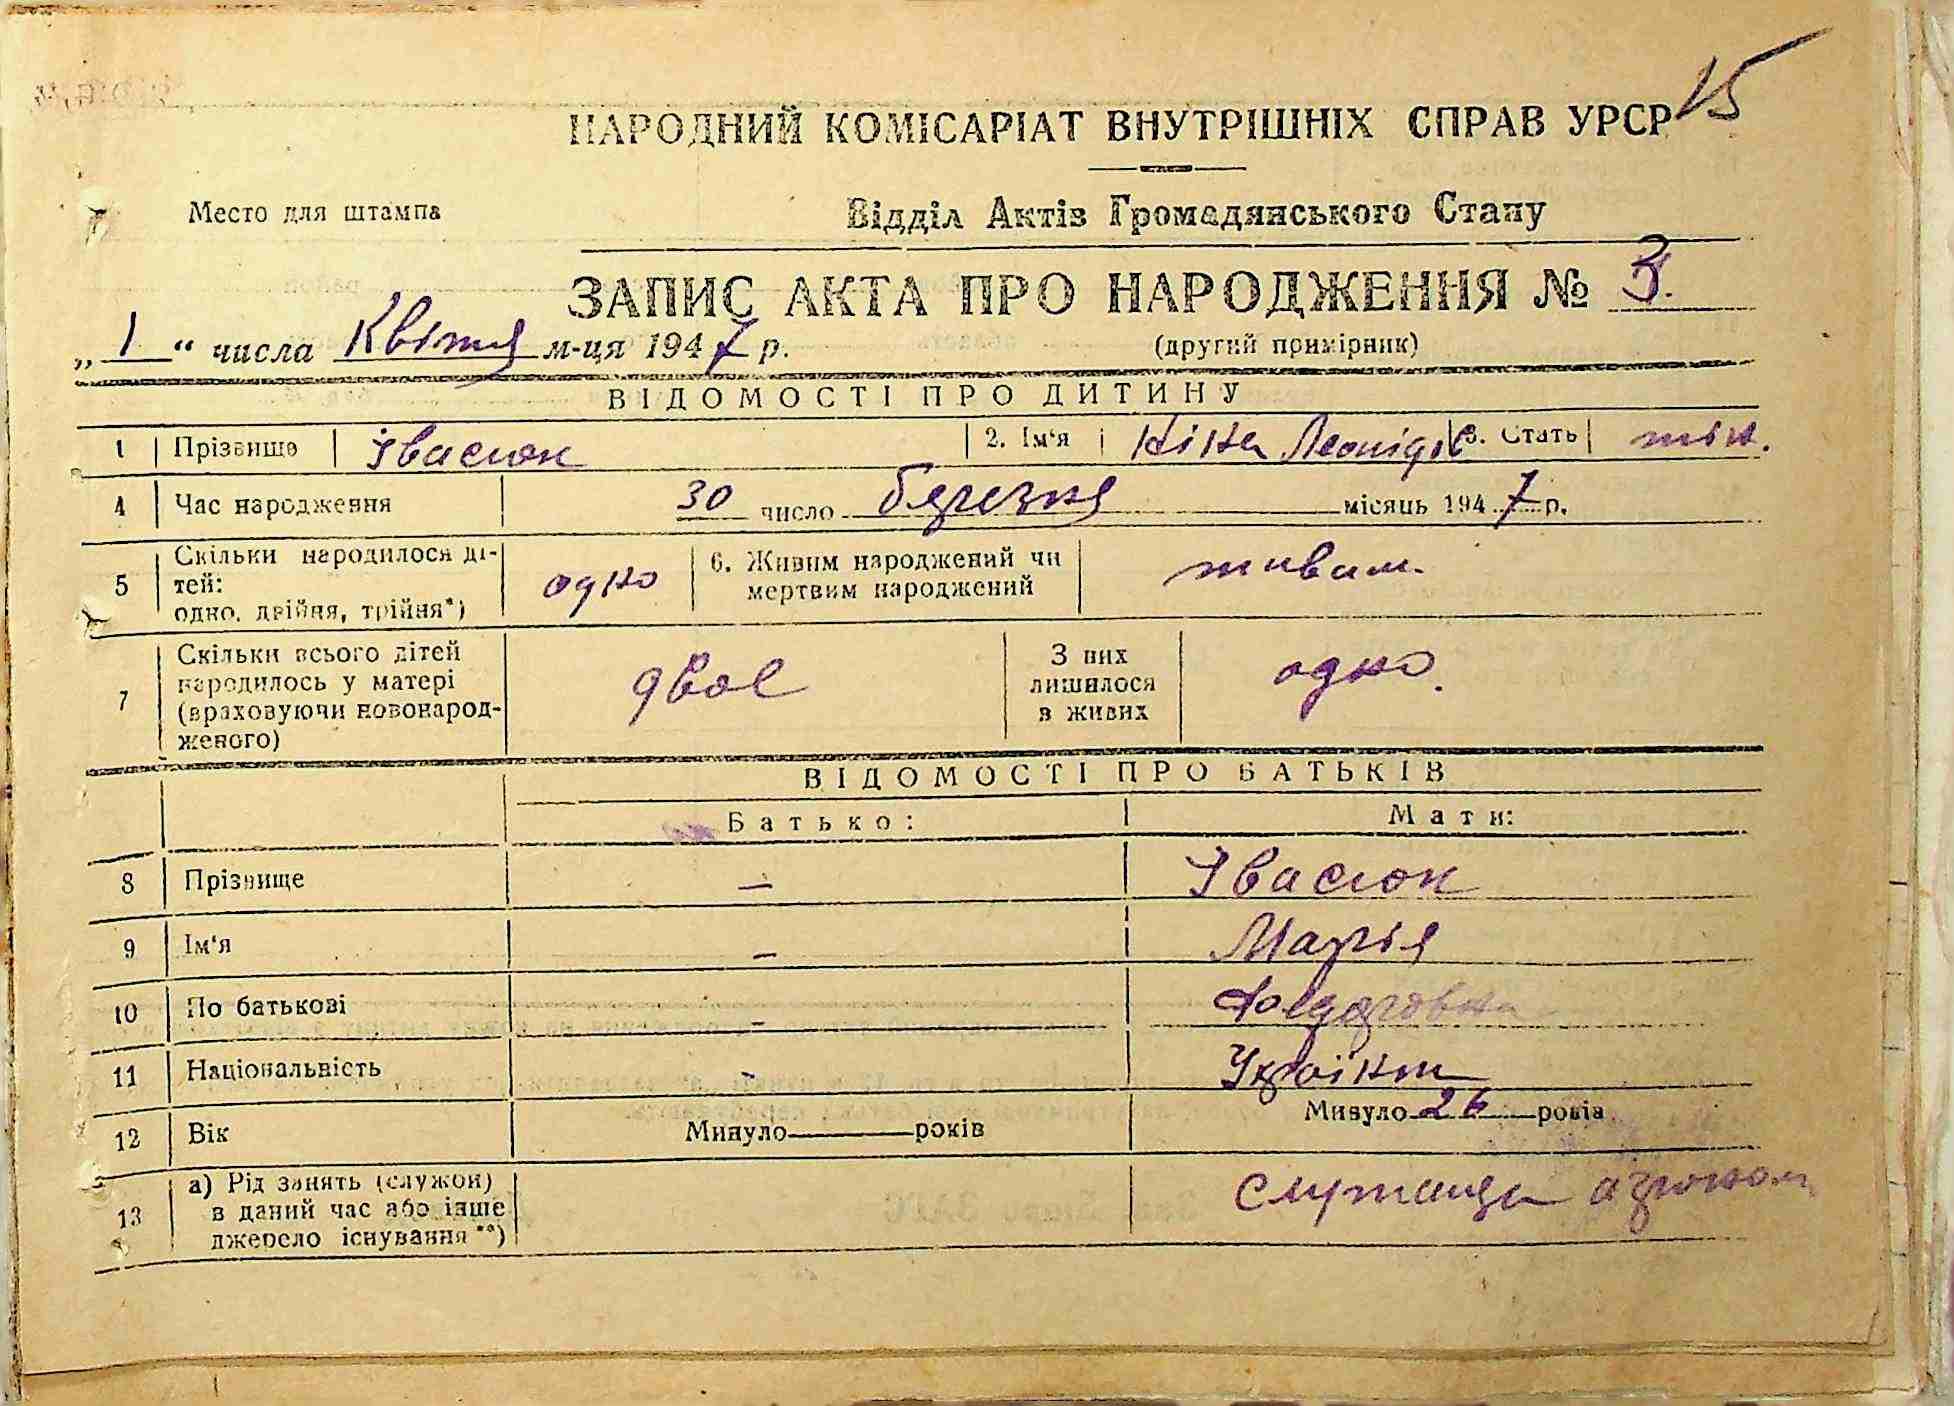 15
НАРОДНИЙ КОМІСАРІАТ ВНУТРІШНІХ СПРАВ УРСР
Место для штампа
Відділ Актів Громадянського Стану
ЗАПИС АКТА ПРО НАРОДЖЕННЯ № 3.
„1“ числа Квітня м-ця 1947 р.
(другий примірник)
ВІДОМОСТІ ПРО ДИТИНУ
1 Прізвище Івасюк 2. Ім'я Ніна Леонідів 3. Стать жін.
4 Час народження 30 число березня місяць 1947 р.
5 Скільки народилося ді-
тей:
одно, двійня, трійня*) одно 6. Живим народжений чи
мертвим народжений живим.
7 Скільки всього дітей
народилось у матері
(враховуючи новонарод-
женого) двоє З них
лишилося
в живих одно.
ВІДОМОСТІ ПРО БАТЬКІВ
Батько: Мати:
8 Прізвище — Івасюк
9 Ім'я — Марія
10 По батькові — Федоровна
11 Національність — Украінка
12 Вік Минуло ــ років Минуло 26 років
13 а) Рід занять (служби)
в даний час або інше
джерело існування **) служаща агроном